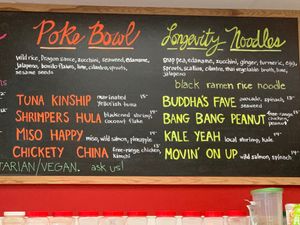 Poke Bowl
wild rice, dragon sauce, zucchini, seaweed, edamame,
jalapeno, bonito flakes, lime, cilantro, sprouts,
sesame seeds
TUNA KINSHIP marinated yellowfin tuna
SHRIMPERS HULA blackened shrimp, coconut flake
MISO HAPPY miso, wild salmon, pineapple
CHICKETY CHINA free-range chicken, kimchi
TARIAN/VEGAN. ask us!
Longevity Noodles
snap pea, edamame, zucchini, ginger, turmeric, egg,
sprouts, scallion, cilantro, thai vegetable broth, lime,
jalapeno
black ramen rice noodle
BUDDHA'S FAVE avocado, spinach, seaweed
BANG BANG PEANUT free-range chicken, peanut
KALE YEAH local shrimp, kale
MOVIN' ON UP wild salmon, spinach